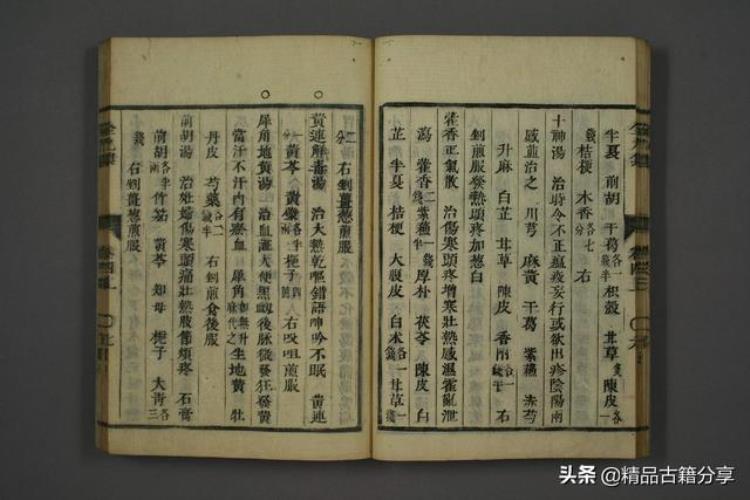 半夏 前胡 干葛各一錢半 枳殼 甘草 陳皮各一
錢 桔梗 木香各七 右
十神湯 治時令不正瘟疫妄行或欲出疹陰陽兩
感並治之 川芎 麻黃 干葛 紫蘇 赤芍
升麻 白芷 甘草 陳皮 香附各一 右
剉煎服發熱頭疼加葱白
藿香正氣散 治傷寒頭疼增寒壯熱感濕霍亂泄
瀉 藿香二錢 紫蘇一錢半 厚朴 茯苓 陳皮 白
芷 半夏 桔梗 大腹皮 白朮各一錢 甘草一
二分 右剉薑葱煎服
黃連解毒湯 治大熱乾嘔錯語呻吟不眠 黃連
黃芩 黃蘗各半 梔子四 右㕮咀煎服
犀角地黃湯 治血證大便黑衄後脉微發狂發黃
當汗不汗內有瘀血 犀角如無升麻代之 生地黃 牡
丹皮 芍藥各一錢半 右剉煎食後服
前胡湯 治妊婦傷寒頭痛壯熱肢節煩疼 石膏
前胡各半兩 竹茹 黃芩 知母 梔子 大青各三
錢 右剉薑葱煎服
头条 @精品古籍分享